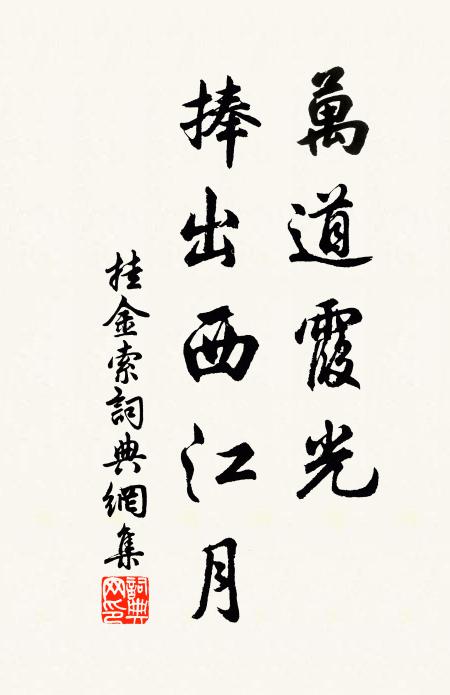 萬道霞光
捧出西江月
挂金索詞典網集
詞典網印